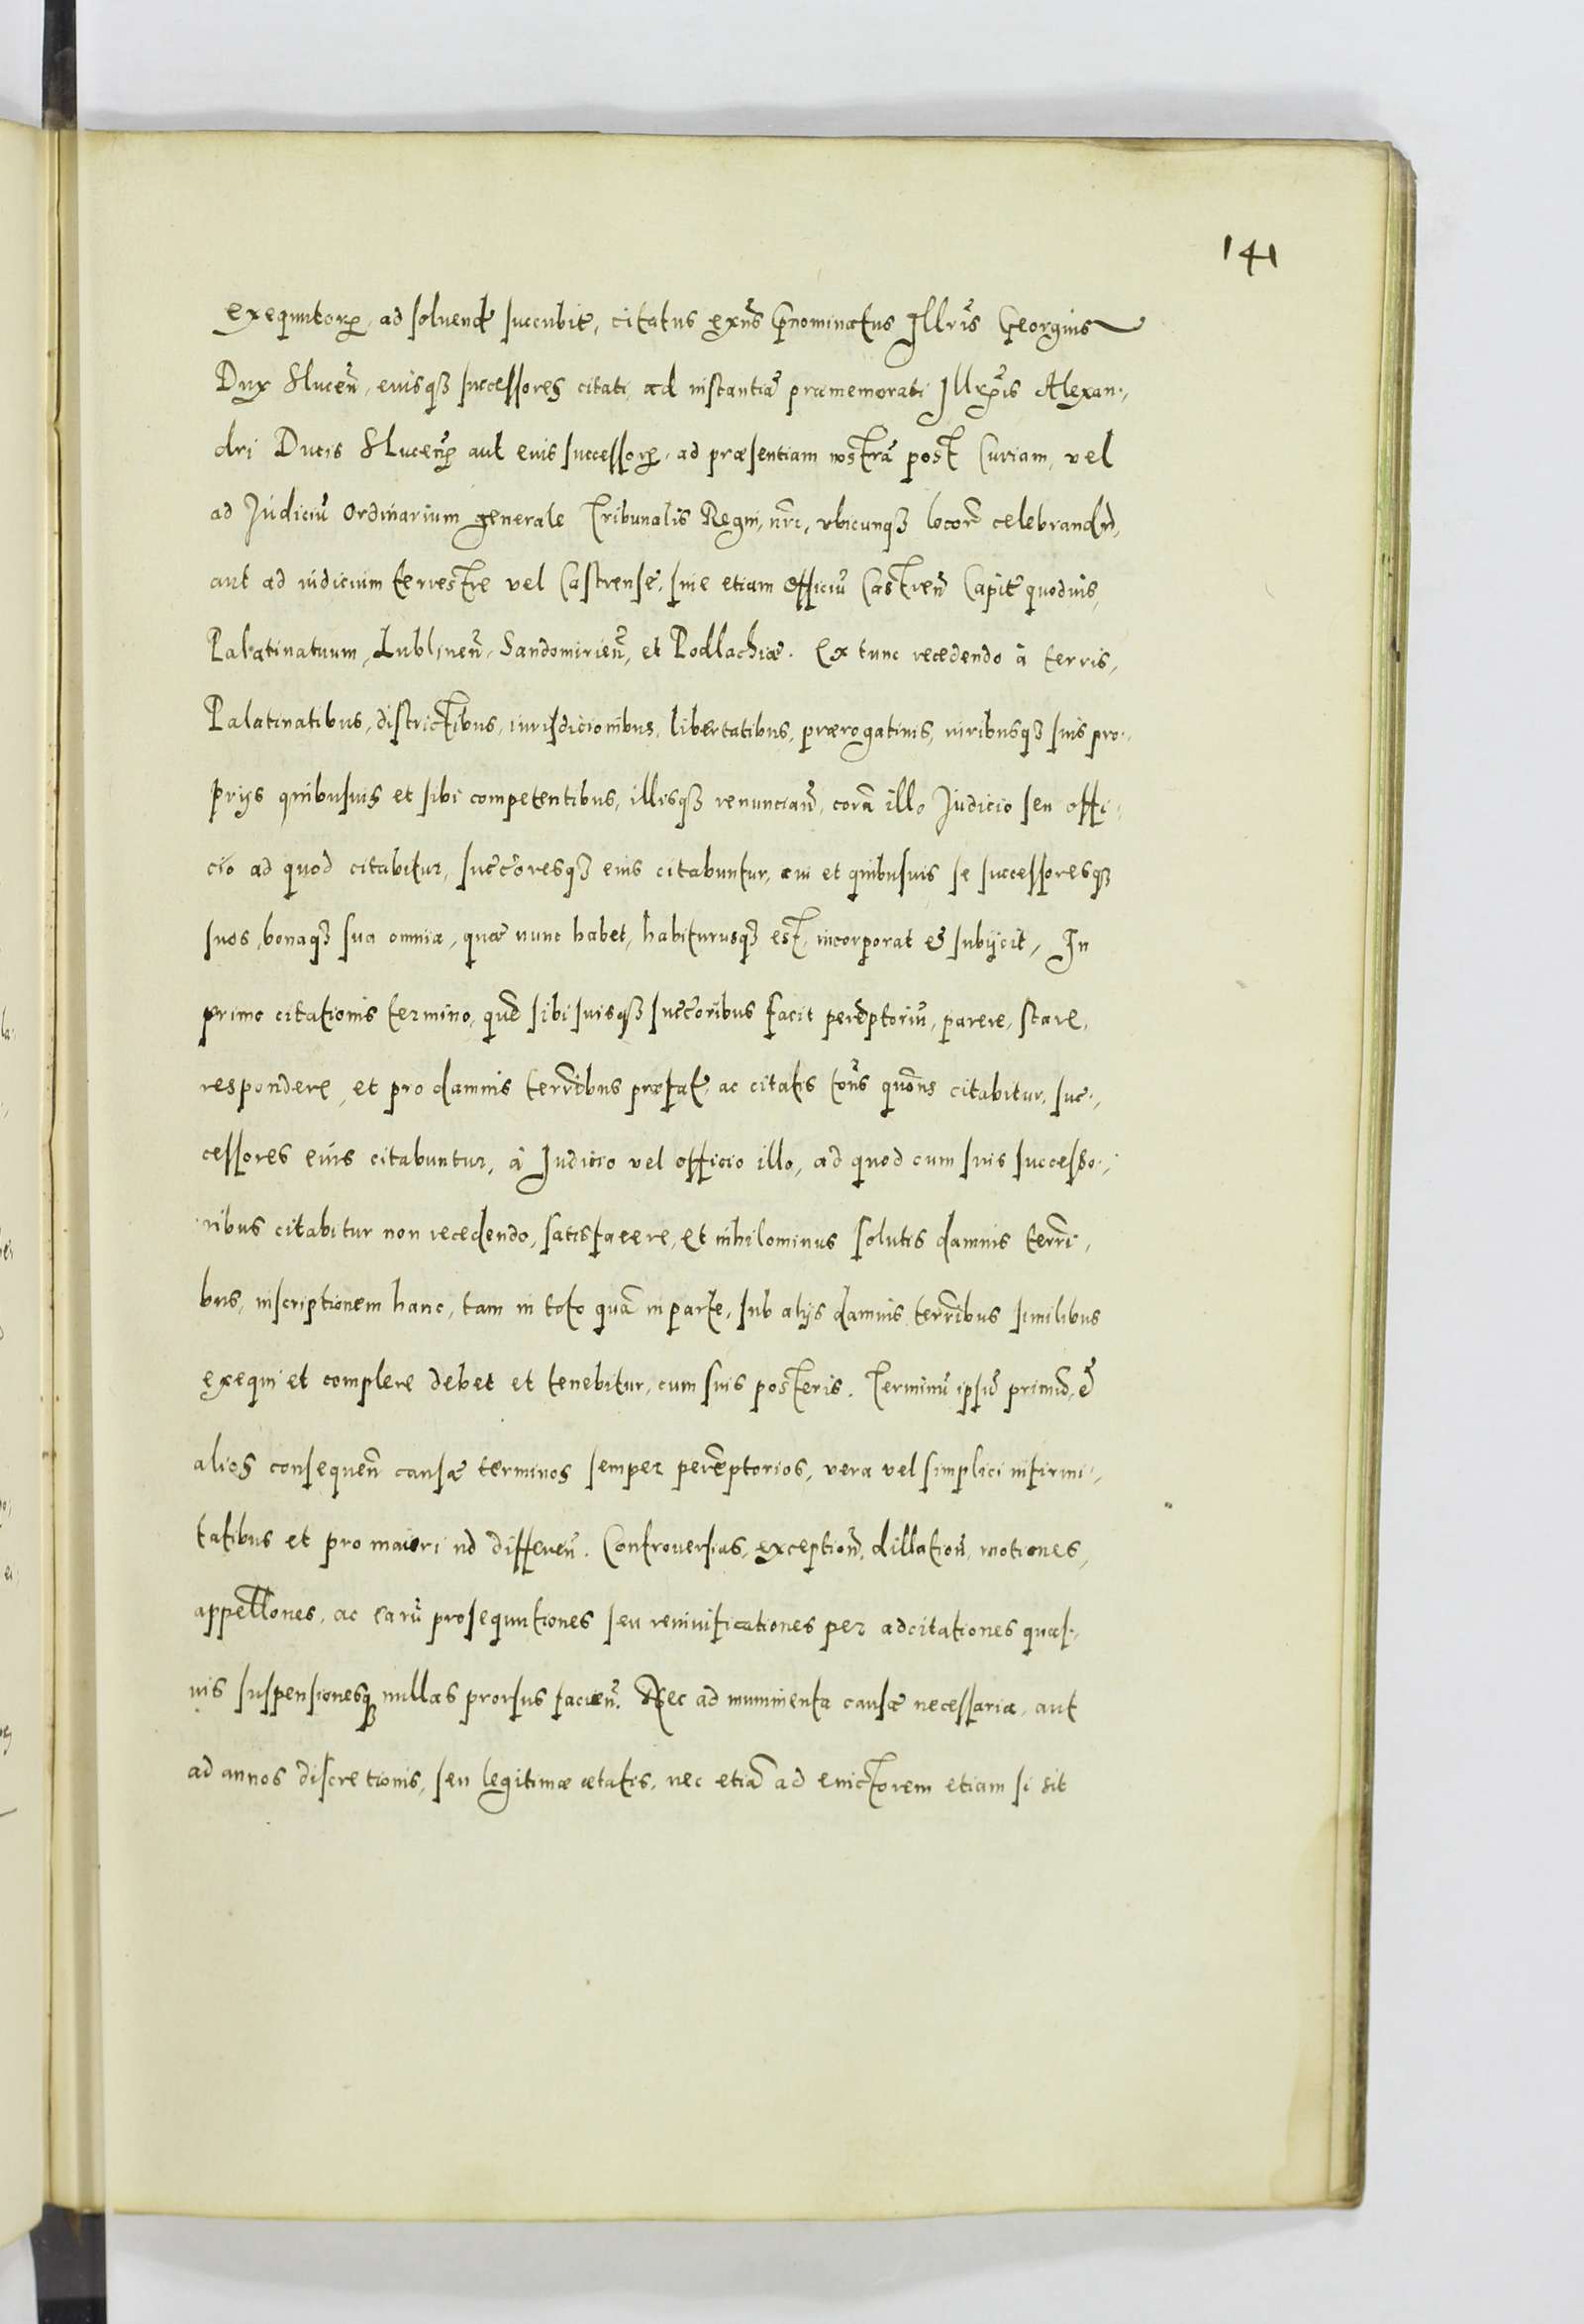 141
exequutorp, ad soluend succubit, citatus exñs Prænominatus Illris Georgius
Dux Slucen, eiusqz successores citati ad instantiã præmemorati Illris Alexan-,
dri Ducis Slucens aut eius successorp, ad præsentiam nostrã post Curiam, vel
ad Iudiciũ Ordinarium generale Tribunalis Regni nri, vbicunqz locorũ celebrandũ,
aut ad iudicium terrestre vel Castrense, siue etiam officiũ Castren Capit quoduis,
Palatinatuum, Lublinen, Sandomirien, et Podlachiæ. Ex tunc recedendo à terris,
Palatinatibus, districtibus, iurisdicionibus, libertatibus, prærogatiuis, iuribusqz suis pro-,
prijs quibusuis et sibi competentibus, illisqz renunciañ, corã illo Iudicio seu offi-
cio ad quod citabitur, succoresqz eius citabuntur, cui et quibusuis se successoresqz
suos, bonaqz sua omnia, quæ nunc habet, habiturusqz est, incorporat et subijcit, In
primo citationis termino, quẽ sibi suisqz succoribus facit perẽptoriũ, parere, stare,
respondere, et pro damnis terribus præfat, ac citatis toñs quoñs citabitur, suc-,
cessores eius citabuntur, à Iudicio vel officio illo, ad quod cum suis successo-,
ribus citabitur non recedendo, satisfacere, et nihilominus solutis damnis terri-,
bus, inscriptionem hanc, tam in toto quã in parte, sub alijs damnis terribus similibus
exequi et complere debet et tenebitur, cum suis posteris. Terminũ ipsũ primũ, et
alios consequeñ causæ terminos semper perẽptorios, vera vel simplici infirmi-,
tatibus et pro maiori nõ differeñ. Controuersias, exceptioñ, dillatioñ, motiones,
appellones, ac earũ prosequutiones seu reuiuificationes per adcitationes quas-,
uis suspensionesqz nullas prorsus facieñ. Nec ad munimenta causæ necessaria, aut
ad annos discretionis, seu legitimæ ætatis, nec etiã ad euictorem etiam si sit